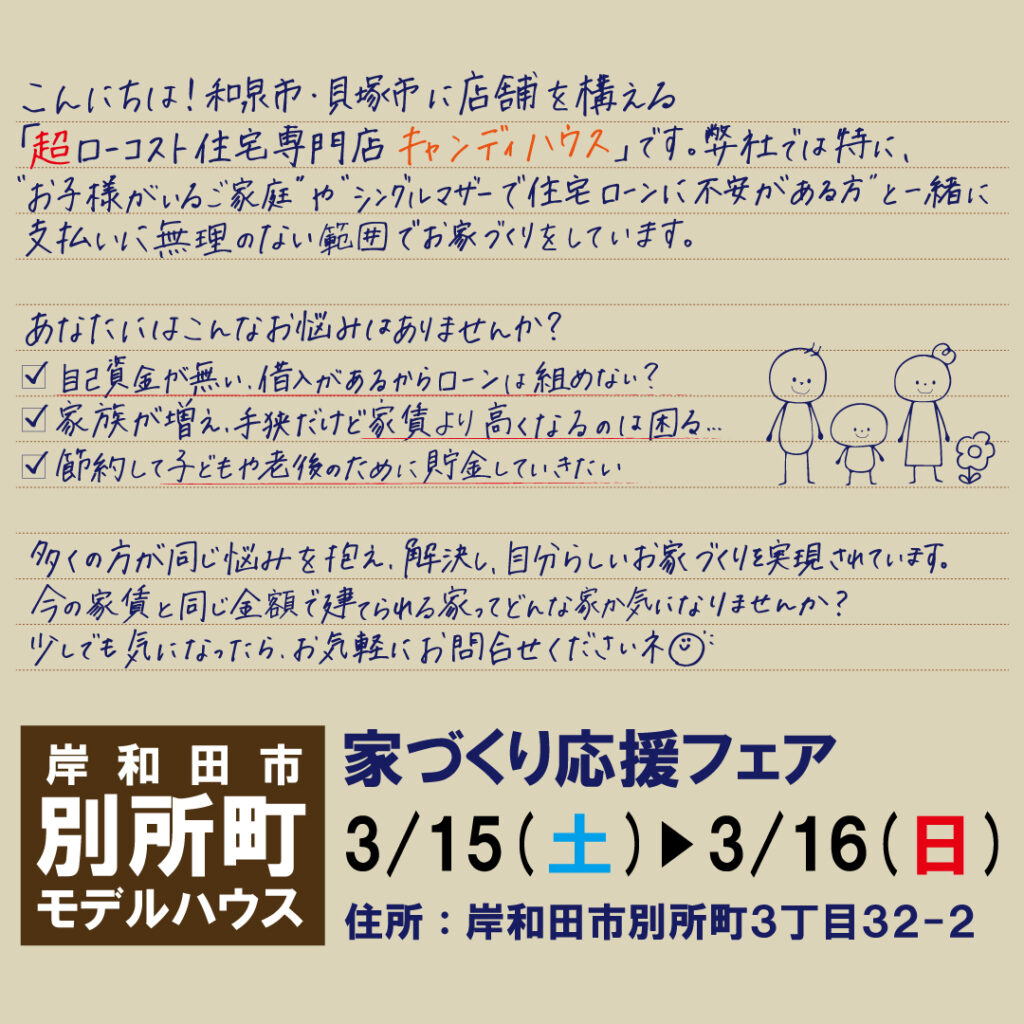 こんにちは！和泉市・貝塚市に店舗を構える
「超ローコスト住宅専門店 キャンディハウス」です。弊社では特に、
"お子様がいるご家庭"や"シングルマザーで住宅ローンに不安がある方"と一緒に
支払いに無理のない範囲でお家づくりをしています。
あなたにはこんなお悩みはありませんか？
☑ 自己資金が無い、借入があるからローンは組めない？
☑ 家族が増え、手狭だけど家賃より高くなるのは困る…
☑ 節約して子どもや老後のために貯金していきたい
多くの方が同じ悩みを抱え、解決し、自分らしいお家づくりを実現されています。
今の家賃と同じ金額で建てられる家ってどんな家か気になりませんか？
少しでも気になったら、お気軽にお問合せくださいネ
岸和田市
別所町
モデルハウス
家づくり応援フェア
3/15(土)▶3/16(日)
住所：岸和田市別所町3丁目32-2